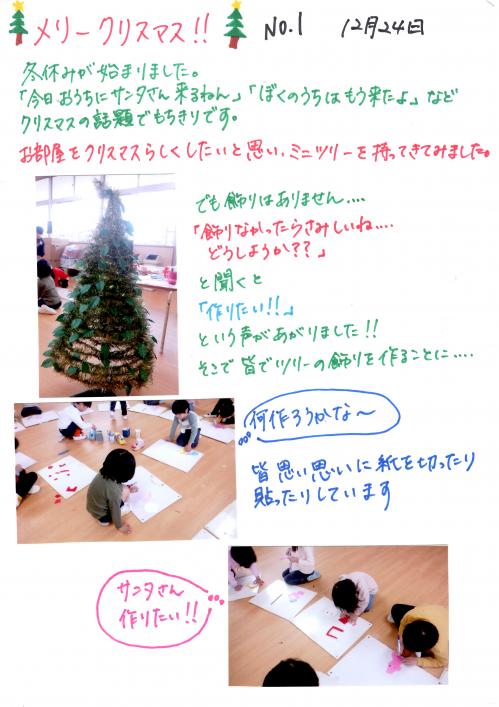 メリークリスマス!! No.1 12月24日
冬休みが始まりました。
「今日おうちにサンタさん来るねん」「ぼくのうちはもう来たよ」など
クリスマスの話題でもちきりです。
お部屋をクリスマスらしくしたいと思い、ミニツリーを持ってきてみました。
でも飾りはありません....
「飾りなかったらさみしいね....
どうしようか??」
と聞くと
「作りたい!!」
という声があがりました!!
そこで皆でツリーの飾りを作ることに....
何作ろうかな〜
皆思い思いに紙を切ったり
貼ったりしています
サンタさん
作りたい!!